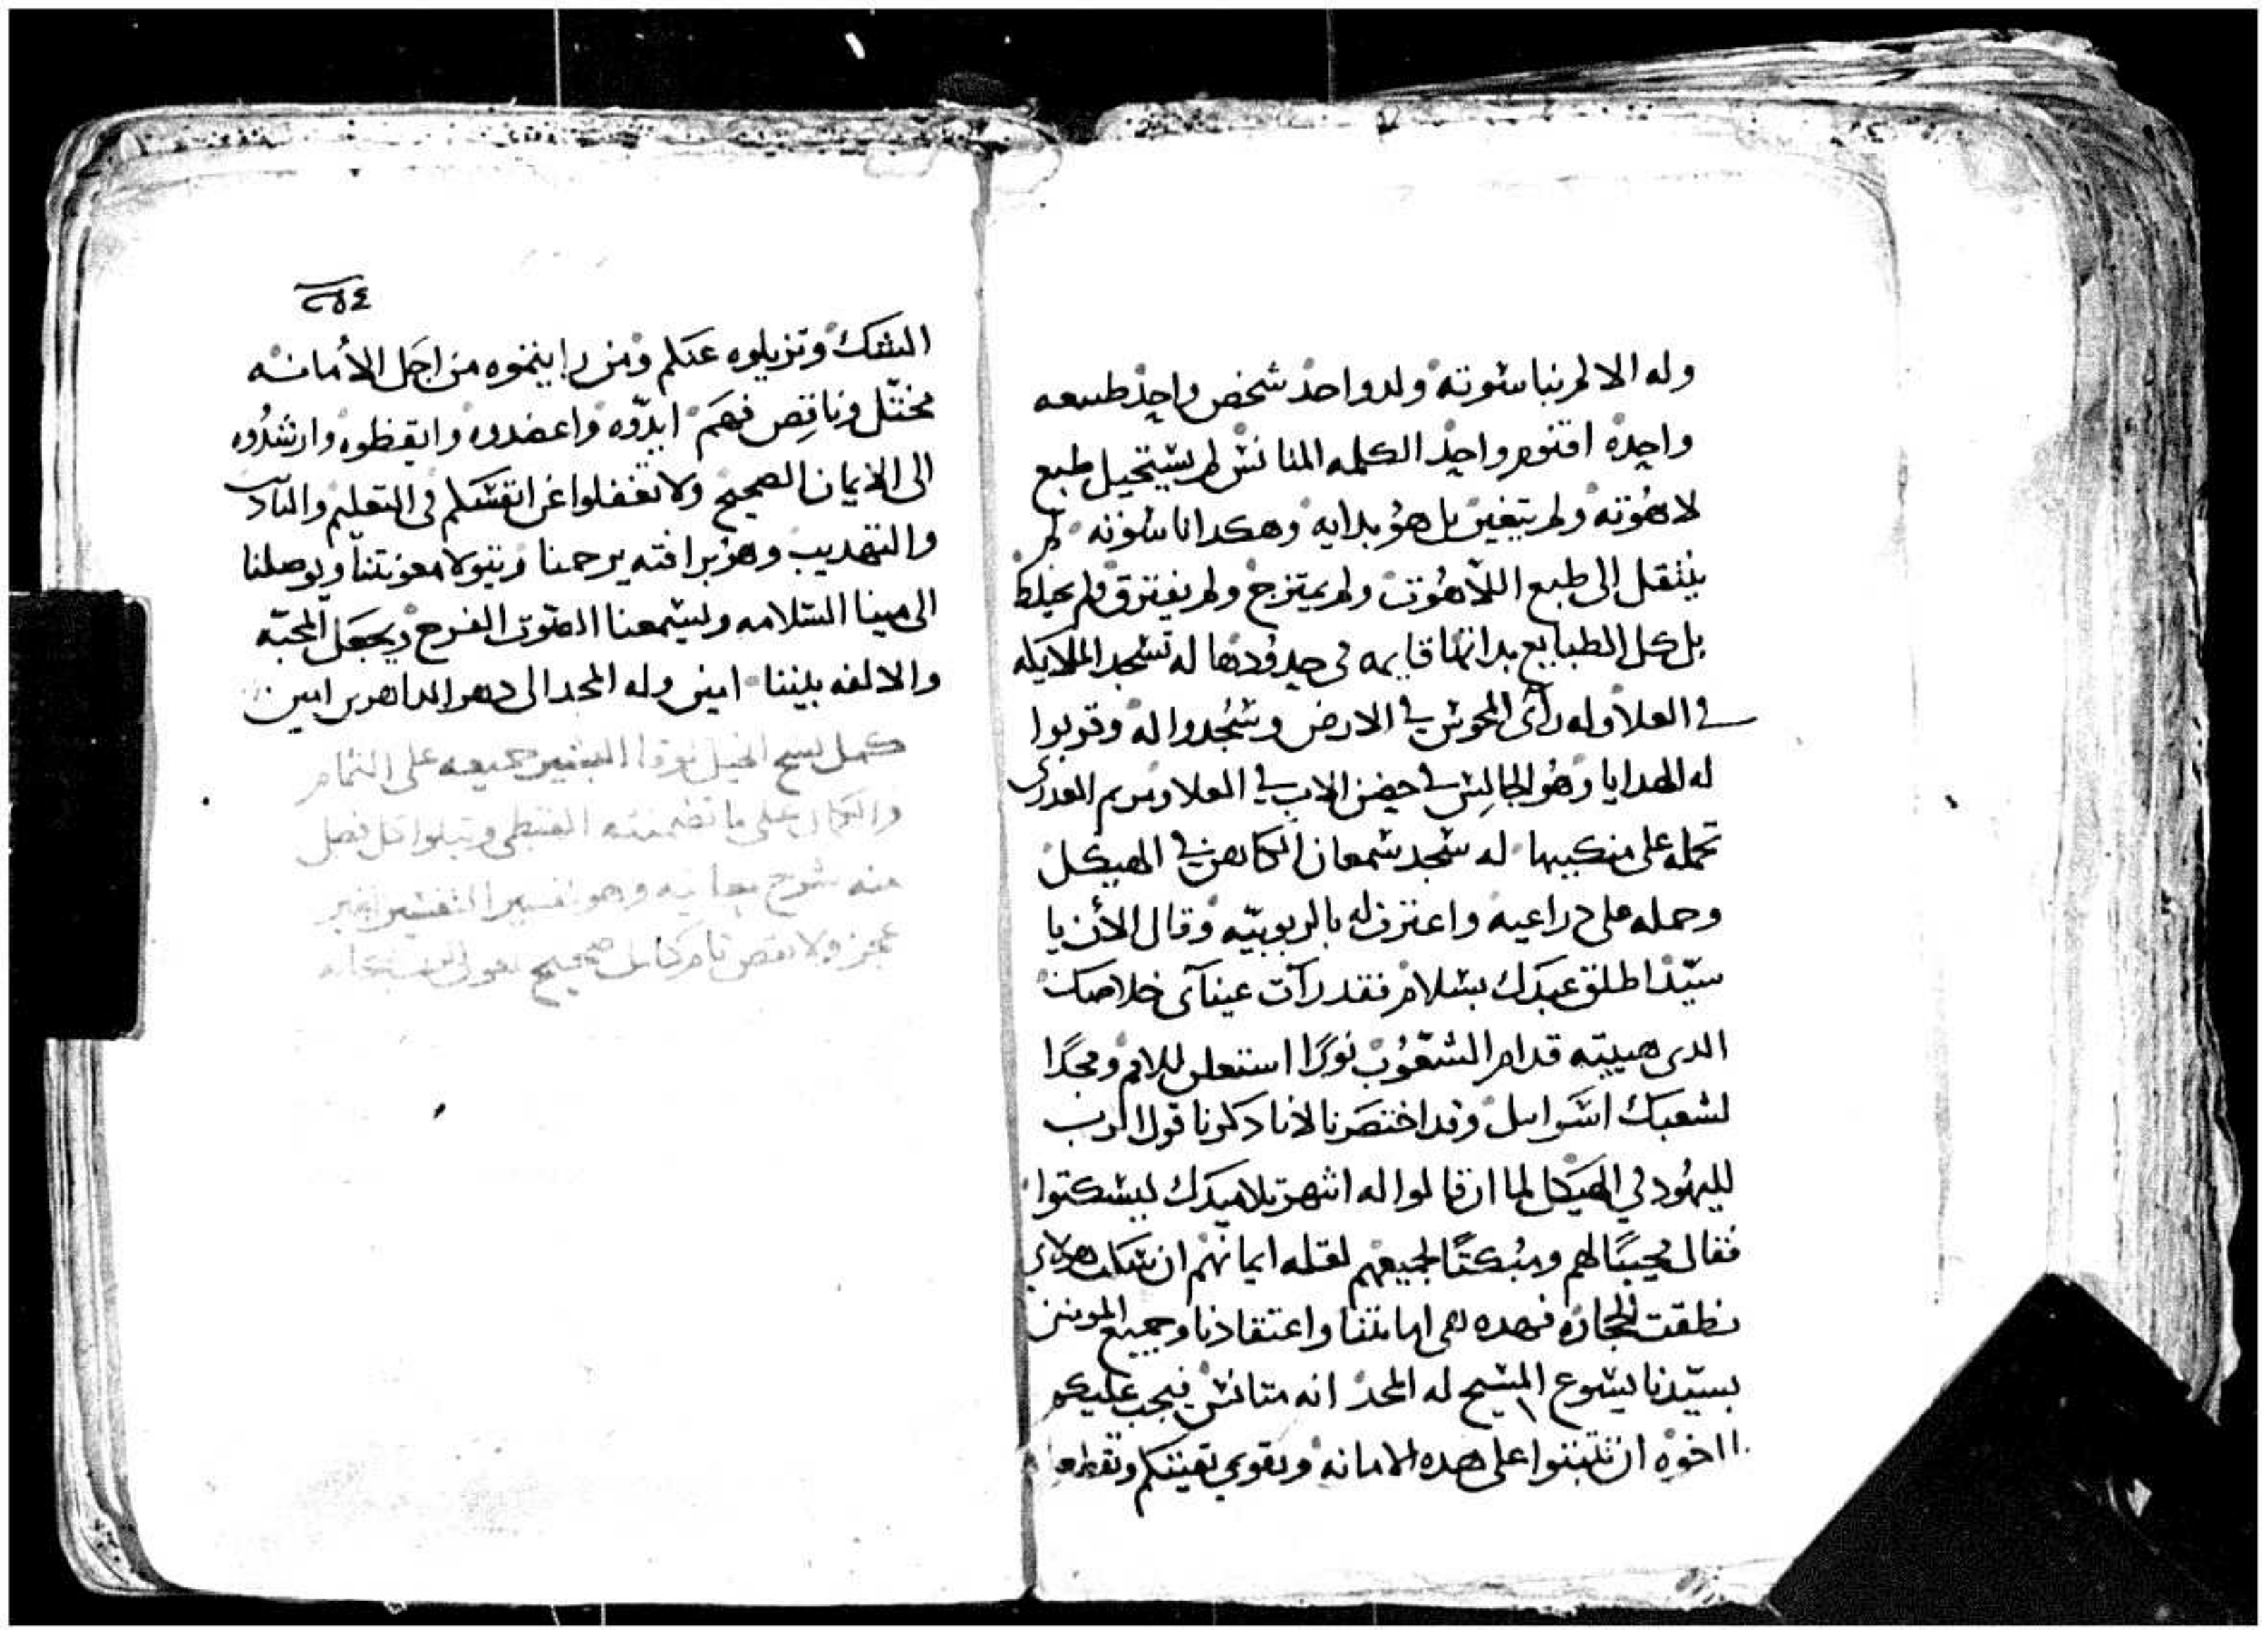 وله الالم بناسوته ولد واحد شخص واحد طبيعه
واحده اقنوم واحد الكلمه المتانس لم يستحيل طبع
لاهوته ولم يتغير بل هو بداته وهكدا ناسوته لم
ينتقل الى طبع اللاهوت ولم يمتزج ولم يفترق ولم يختلط
بل كل الطبايع بداتها قايمه في حدودها له تسجد الملايكه
في العلا وله رأى المجوس في الارض وسجدوا له وقربوا
له الهدايا وهو الجالس في حضن الاب في العلا ومريم العدرى
تحمله على منكبيها له سجد سمعان الكاهن في الهيكل
وحمله على دراعيه واعترف له بالربوبيه وقال الأن يا
سيد اطلق عبدك بسلام فقد رآت عيناى خلاصك
الدى هييته قدام الشعوب نورًا استعلن للامم ومجدًا
لشعبك اسراىيل وقد اختصرنا لانا دكرنا قول الرب
لليهود في الهيكل لما ان قالوا له انتهر تلاميدك ليسكتوا
فقال مجيبًا لهم ومبكتًا لجميعهم لقله ايمانهم ان سكت هولاي
نطقت الحجاره فهده هى امانتنا واعتقادنا وجميع المومنين
بسيدنا يسوع المسيح له المجد انه متانس فيجب عليكم
يا اخوه ان تتبتوا على هده الامانه وتقوي نفيتكم وتقطعوا
٢٥٤
الشك وتزيلوه عنكم ومن راينتموه من اجل الأمانه
مختل وناقص فهم ايدّوه واعضدوه وايقظوه وارشدُوه
الى الايمان الصحيح ولا تغفلوا عن انفسكم فى التعليم والتادب
والتهديب وهو برافته يرحمنا ويتولا معونتنا ويوصلنا
الى مينا السلامه ويسمعنا الصوت الفرح ويجعل المحبّه
والالفه بيننا امين وله المجد الى دهر الداهرين امين
كمل نسخ انجيل لوقا البشير جميعه على التمام
والكمال على ما تضمنته القبطى ويتلوا كل فصل
منه شرح معانيه وهو تفسير التفسير بغير
عجز ولا نقص تام كامل صحيح بعون الرب سبحانه